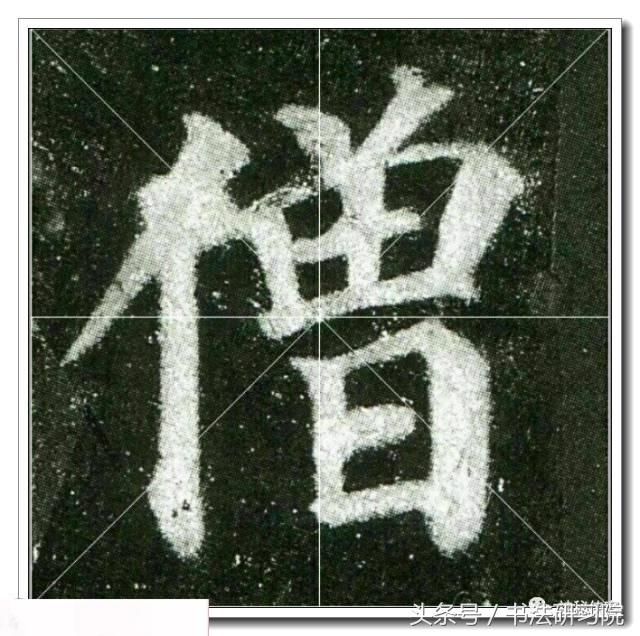 僧
头条号／书法研习院